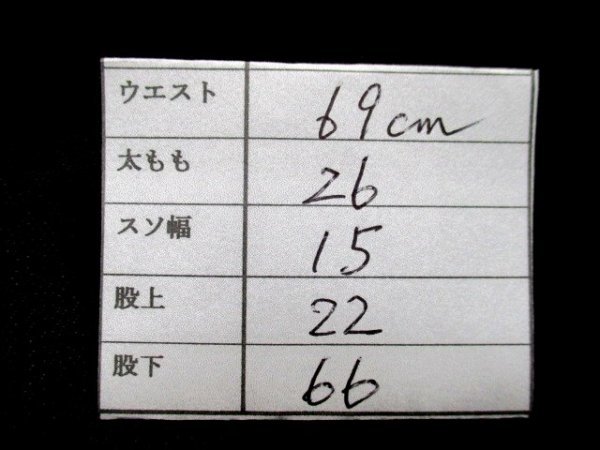 ウエスト 69cm
太もも 26
スソ幅 15
股上 22
股下 66